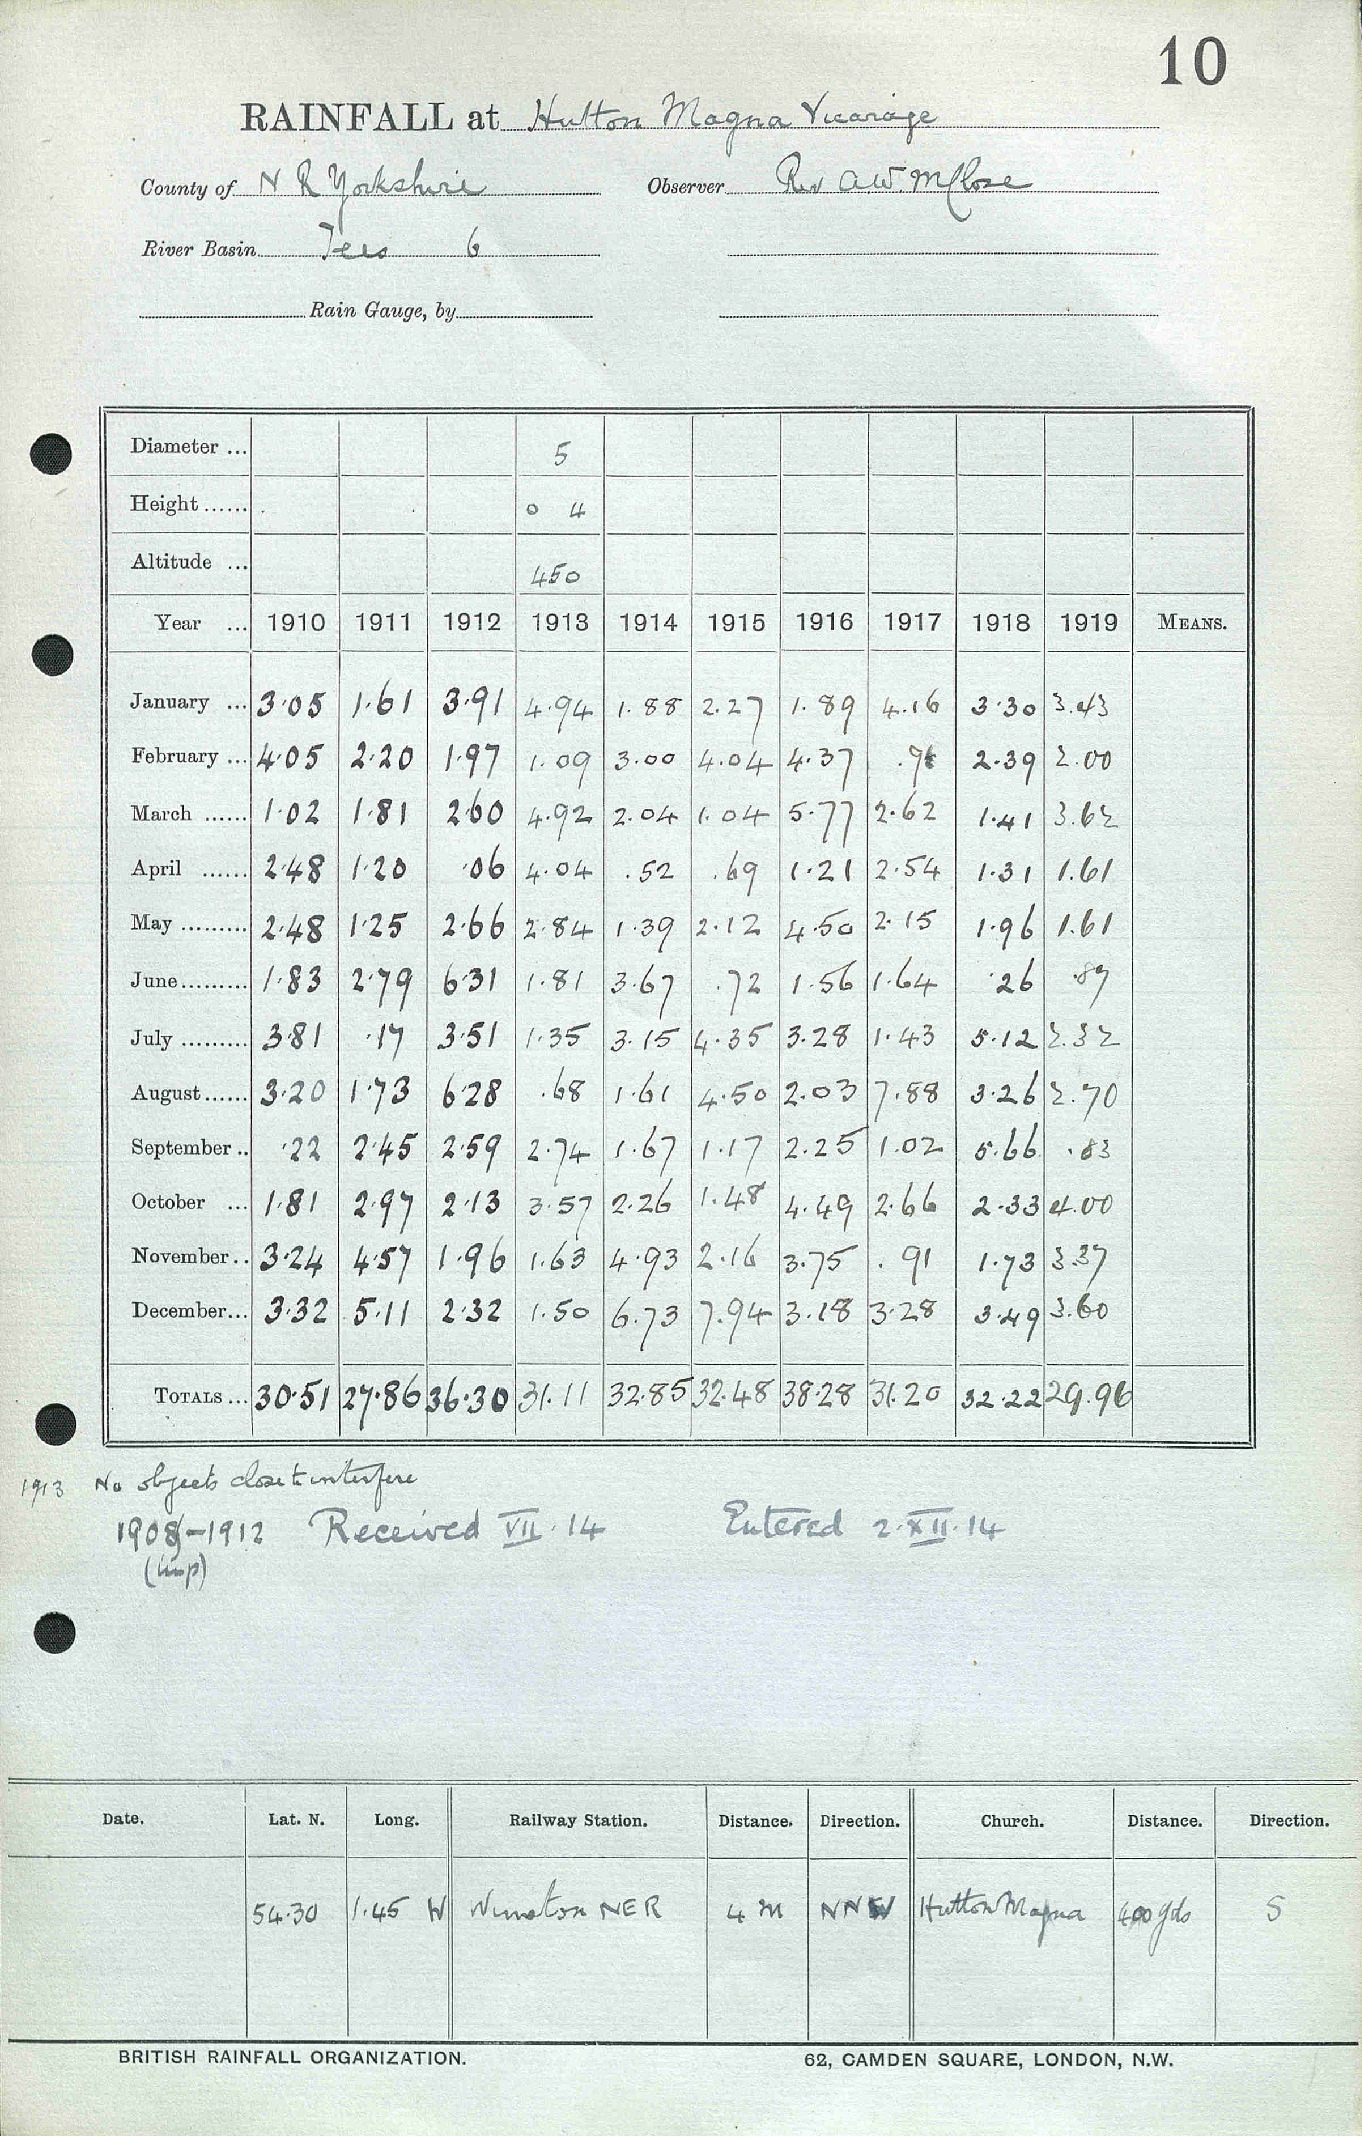 10
RAINFALL at Hutton Magna Vicarage
County of N R Yorkshire Observer Rev A.W. McClose
River Basin Tees 6
Rain Gauge, by
Diameter ... 5
Height ...... 0 4
Altitude ... 450
Year ... 1910 1911 1912 1913 1914 1915 1916 1917 1918 1919 MEANS.
January ... 3·05 1·61 3·91 4·94 1·88 2·27 1·89 4·16 3·30 3.43
February ... 4·05 2·20 1·97 1·09 3·00 4·04 4·37 .91 2·39 2.00
March ...... 1·02 1·81 2·60 4·92 2·04 1·04 5·77 2·62 1·41 3.62
April ...... 2·48 1·20 ·06 4·04 .52 .69 1·21 2·54 1·31 1.61
May ......... 2·48 1·25 2·66 2·84 1·39 2·12 4·50 2·15 1·96 1.61
June ......... 1·83 2·79 6·31 1·81 3·67 .72 1·56 1·64 ·26 .87
July ......... 3·81 ·17 3·51 1·35 3·15 4·35 3·28 1·43 5·12 2.32
August ...... 3·20 1·73 6·28 .68 1·61 4·50 2·03 7·88 3·26 2.70
September .. ·22 2·45 2·59 2·74 1·67 1·17 2·25 1·02 5·66 .83
October ... 1·81 2·97 2·13 3·57 2·26 1·48 4·49 2·66 2·33 4.00
November .. 3·24 4·57 1·96 1·63 4·93 2·16 3·75 .91 1·73 3.37
December ... 3·32 5·11 2·32 1·50 6·73 7·94 3·18 3·28 3·49 3.60
TOTALS ... 30·51 27·86 36·30 31·11 32·85 32·48 38·28 31·20 32·22 29.96
1913 No objects close to interfere
1908-1912 Received VII·14 Entered 2·XII·14
(imp)
Date. Lat. N. Long. Railway Station. Distance. Direction. Church. Distance. Direction.
54·30 1·45 W Winston NER 4 m NNW Hutton Magna 400 yds S
BRITISH RAINFALL ORGANIZATION. 62, CAMDEN SQUARE, LONDON, N.W.